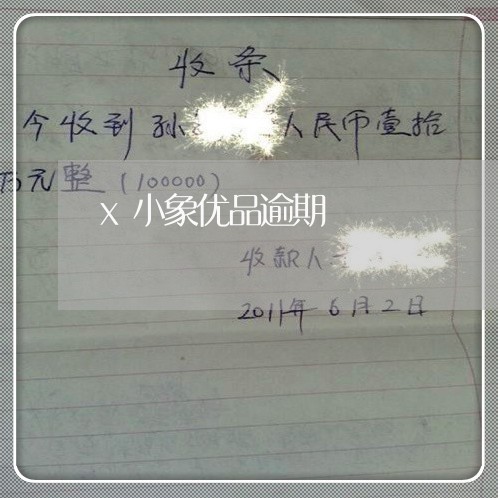 收条
今收到孙 人民币壹拾
万元整(100000)
x 小象优品逾期
收款人
2011年6月2日